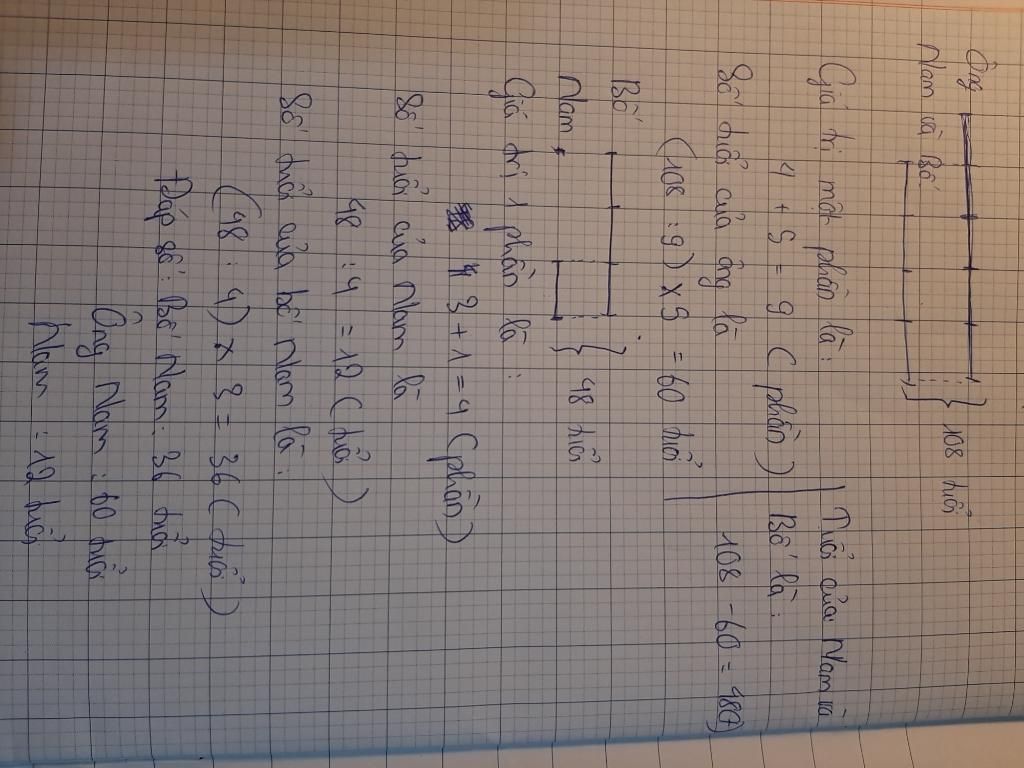 Ông
Nam và Bố
108 tuổi
Giá trị một phần là:
4 + 5 = 9 ( phần )
Số tuổi của ông là
(108 : 9) x 5 = 60 tuổi
Tuổi của Nam và
Bố là:
108 - 60 = 48
Bố
Nam
48 tuổi
Giá trị 1 phần là :
3 + 1 = 4 ( phần )
Số tuổi của Nam là
48 : 4 = 12 ( tuổi )
Số tuổi của bố Nam là :
(48 : 4) x 3 = 36 ( tuổi )
Đáp số : bố Nam: 36 tuổi
Ông Nam : 60 tuổi
Nam : 12 tuổi